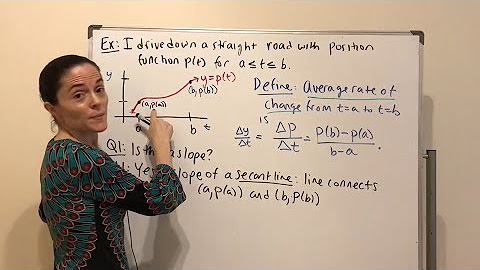 Ex: I drive down a straight road with position
function p(t) for a ≤ t ≤ b.
y
y=p(t)
(b,p(b))
(a,p(a))
a b t
Define: Average rate of
change from t=a to t=b
is
Δy/Δt = Δp/Δt = p(b)-p(a)/b-a.
Q1: Is a slope?
Yes slope of a secant line: line connects
(a,p(a)) and (b,p(b))